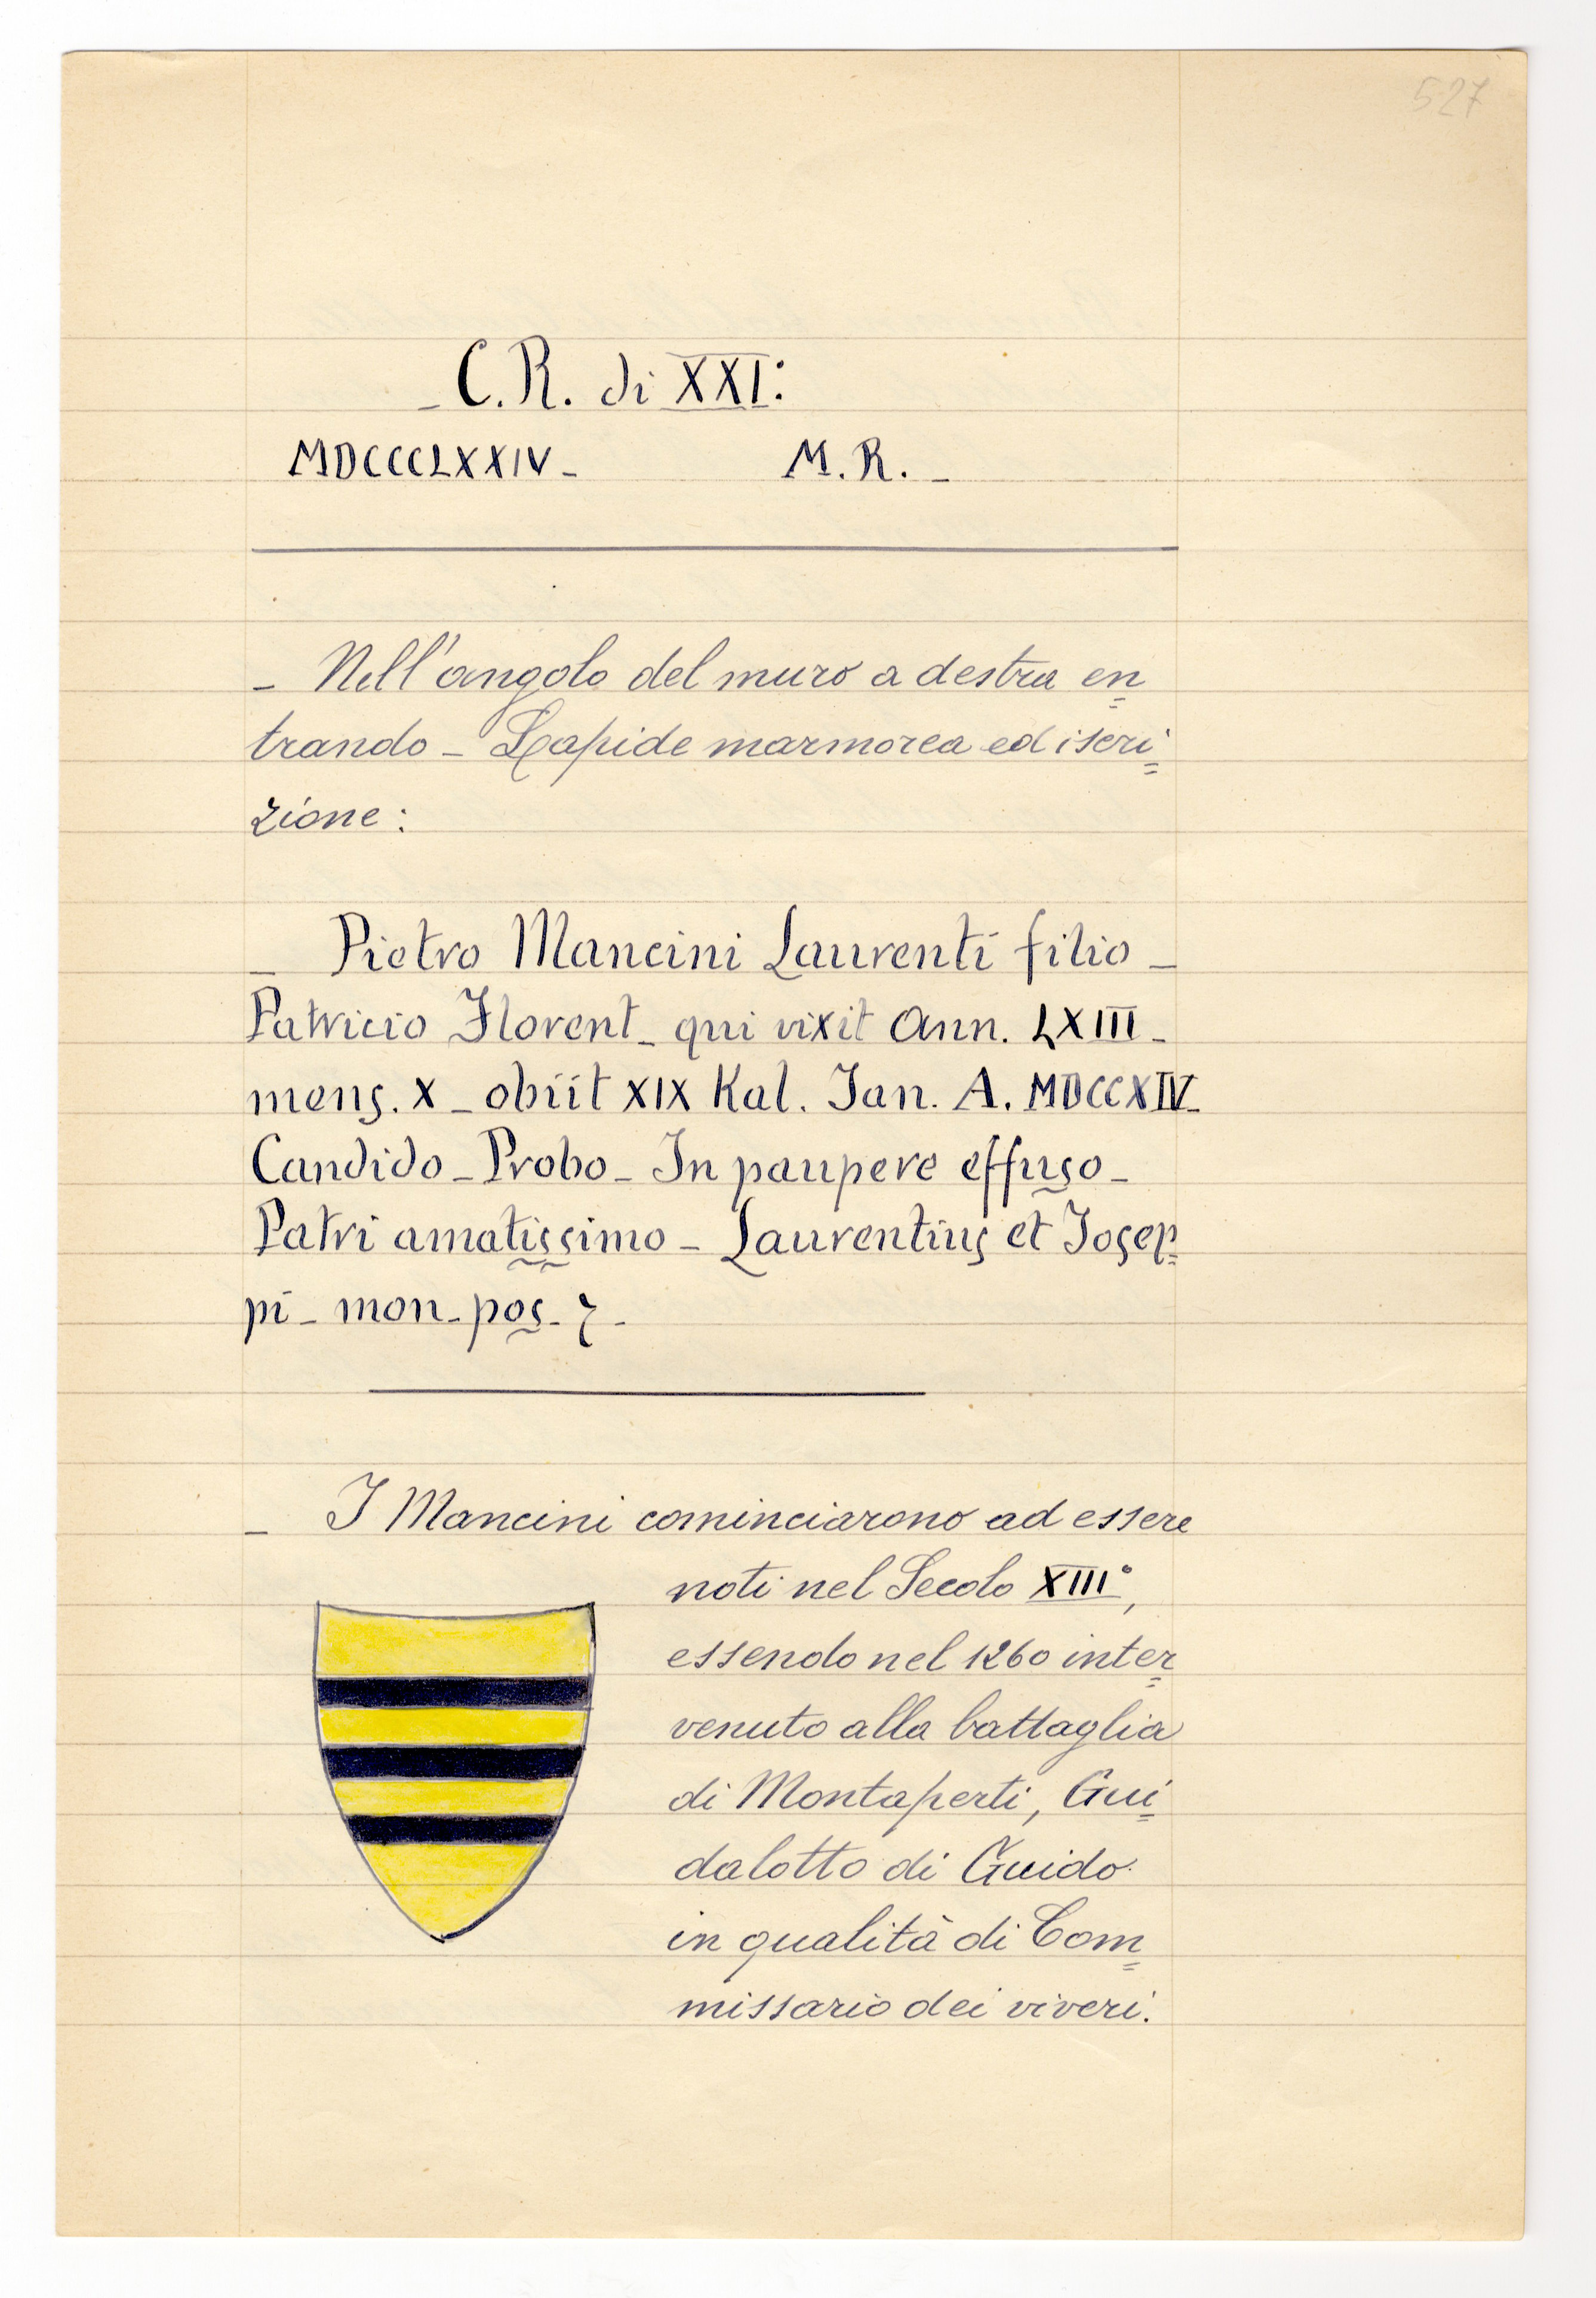 527
_ C. R. di XXI:
MDCCCLXXIV _ M. R. _
_ Nell'angolo del muro a destra en=
trando _ Lapide marmorea ed iscri=
zione:
_ Pietro Mancini Laurenti filio _
Patricio Florent _ qui vixit Ann. LXIII _
mens. X _ obiit XIX Kal. Jan. A. MDCCXIV _
Candido _ Probo _ In paupere effuso _
Patri amatissimo _ Laurentius et Josep=
pi _ mon _ pos _ 7 _
_ I Mancini cominciarono ad essere
noti nel Secolo XIII°,
essendo nel 1260 inter=
venuto alla battaglia
di Montaperti, Gui=
dalotto di Guido
in qualità di Com=
missario dei viveri.